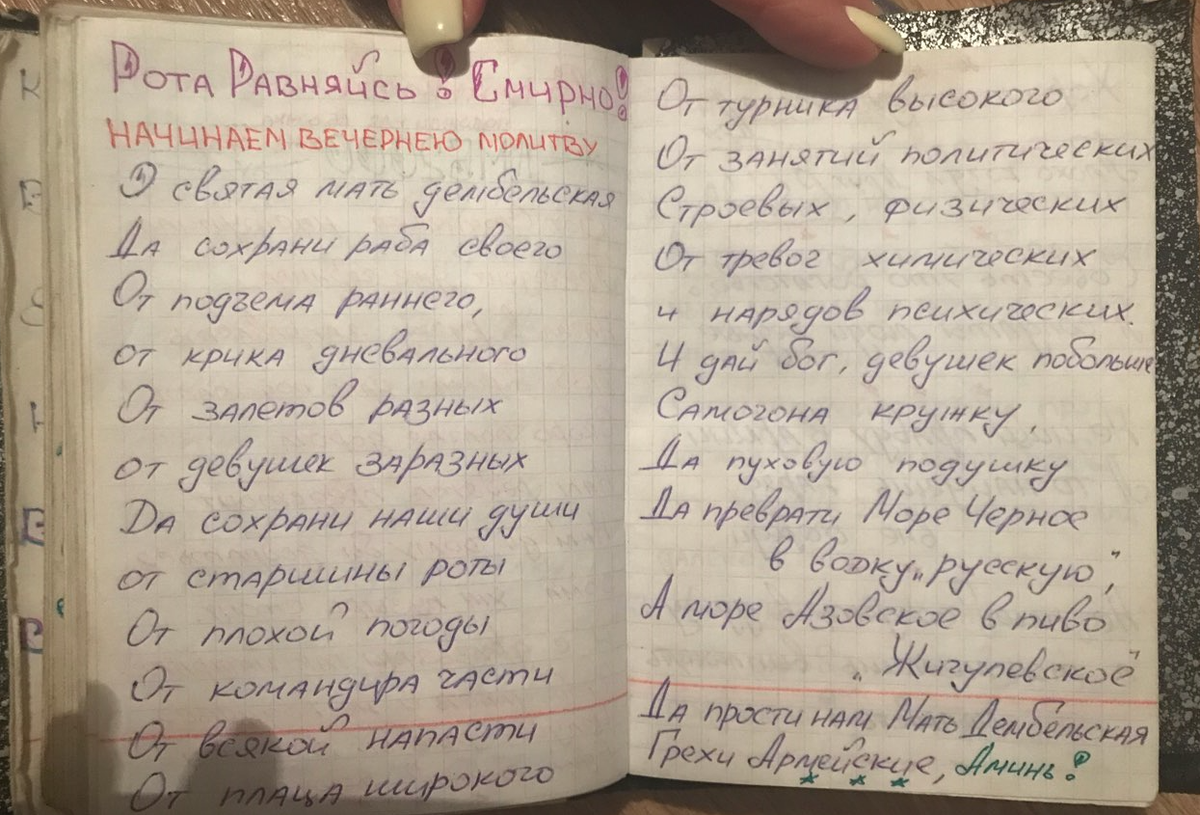 Рота Равняйсь! Смирно!
НАЧИНАЕМ ВЕЧЕРНЕЮ МОЛИТВУ
О святая мать дембельская
Да сохрани раба своего
От подъема раннего,
от крика дневального
От залетов разных
от девушек заразных
Да сохрани наши души
от старшины роты
От плохой погоды
От командира части
От всякой напасти
От плаца широкого
От турника высокого
От занятий политических
Строевых, физических
От тревог химических
и нарядов психических.
И дай бог, девушек побольше
Самогона кружку,
Да пуховую подушку
Да преврати Море Черное
в водку „русскую",
А море Азовское в пиво
„Жигулевское"
Да прости нам Мать Дембельская
Грехи Армейские, Аминь!